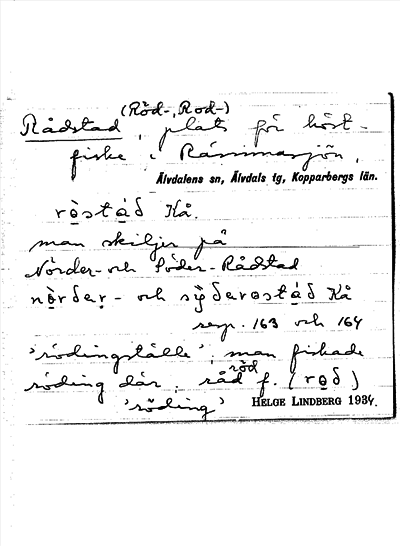 (Röd-, Rod-)
Rådstad, plats för höst-
fiske i Råsimasjön,
Älvdalens sn, Älvdals tg, Kopparbergs län.
rọ̀stạ́d Kå.
man skiljer på
Norder- och Söder-Rådstad
nọ̀rdeṛ- och sỵ̀derọstạ́d Kå
resp. 163 och 164
'rödingställe'; man fiskade
röding där; råd f. (rọd)
röd
'röding'
HELGE LINDBERG 1934.